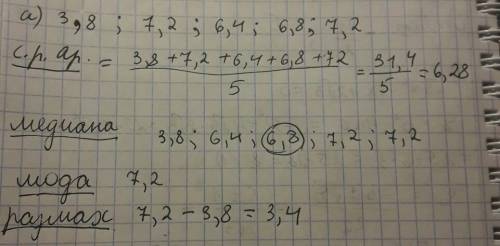 а) 3,8 ; 7,2 ; 6,4 ; 6,8 ; 7,2
с.р. ар. = 3,8 + 7,2 + 6,4 + 6,8 + 72 / 5 = 31,4 / 5 = 6,28
медиана 3,8 ; 6,4 ; 6,8 ; 7,2 ; 7,2
мода 7,2
размах 7,2 - 3,8 = 3,4